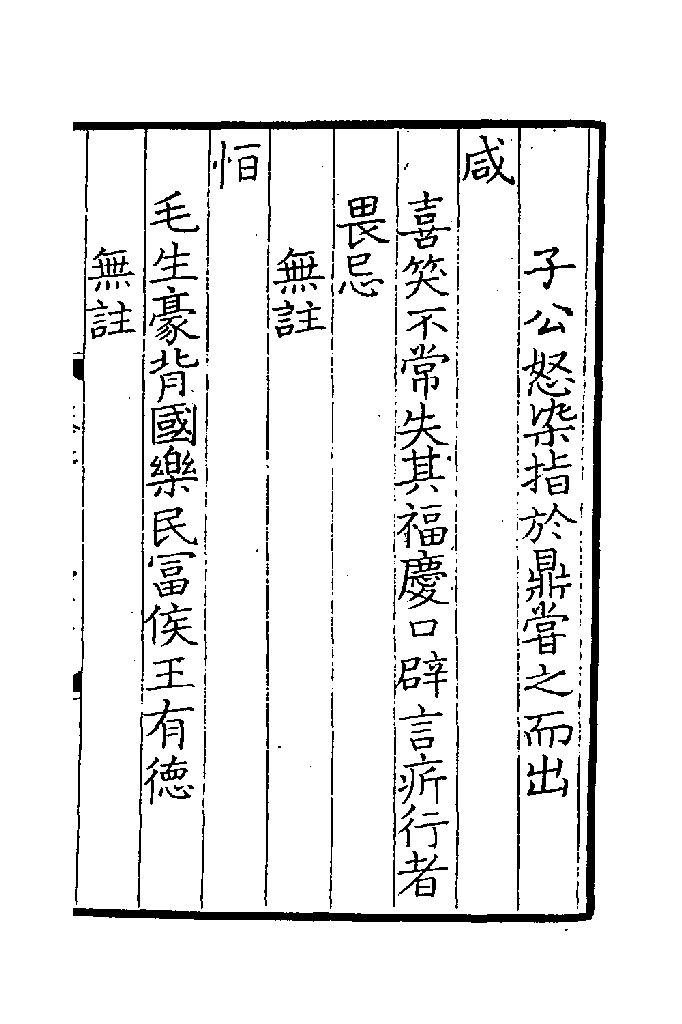 子公怒染指於鼎嘗之而出
咸
喜笑不常失其福慶口辟言𤵺行者
畏忌
無註
恒
毛生豪背國樂民冨侯王有德
無註